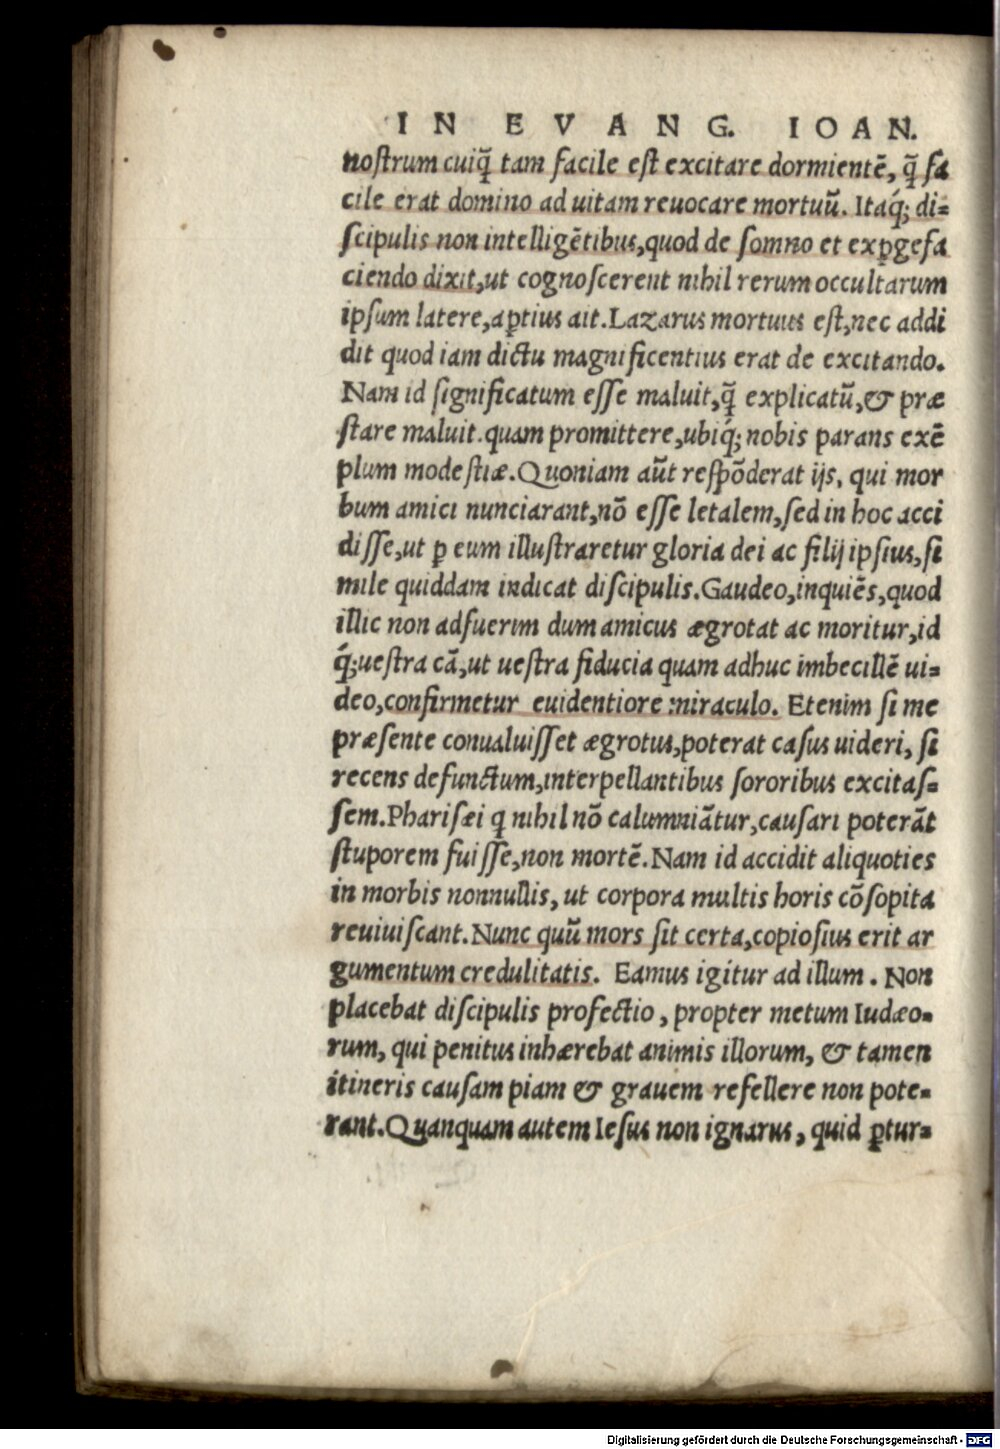 IN EVANG. IOAN.
noſtrum cuiq̃ tam facile eſt excitare dormientē, q̃ fa
cile erat domino ad uitam reuocare mortuũ. Itaq́; di=
ſcipulis non intelligētibus, quod de ſomno et exꝑgefa
ciendo dixit, ut cognoſcerent nihil rerum occultarum
ipſum latere, aꝑtius ait. Lazarus mortuus eſt, nec addi
dit quod iam dictu magnificentius erat de excitando.
Nam id ſignificatum eſſe maluit, q̃ explicatũ, & præ
ſtare maluit. quam promittere, ubiq́; nobis parans exē
plum modeſtiæ. Quoniam aũt reſpõderat ijs, qui mor
bum amici nunciarant, nõ eſſe letalem, ſed in hoc acci
diſſe, ut ꝑ eum illuſtraretur gloria dei ac filij ipſius, ſi
mile quiddam indicat diſcipulis. Gaudeo, inquiēs, quod
illic non adfuerim dum amicus ægrotat ac moritur, id
q́; ueſtra cã, ut ueſtra fiducia quam adhuc imbecillē ui=
deo, confirmetur euidentiore miraculo. Etenim ſi me
præſente conualuiſſet ægrotus, poterat caſus uideri, ſi
recens defunctum, interpellantibus ſororibus excitaſ=
ſem. Phariſæi q nihil nõ calumniãtur, cauſari poterãt
ſtuporem fuiſſe, non mortē. Nam id accidit aliquoties
in morbis nonnullis, ut corpora multis horis cõſopita
reuiuiſcant. Nunc quũ mors ſit certa, copioſius erit ar
gumentum credulitatis. Eamus igitur ad illum. Non
placebat diſcipulis profectio, propter metum Iudæo=
rum, qui penitus inhærebat animis illorum, & tamen
itineris cauſam piam & grauem refellere non pote=
rant. Quanquam autem Ieſus non ignarus, quid ꝑtur=
Digitalisierung gefördert durch die Deutsche Forschungsgemeinschaft - DFG